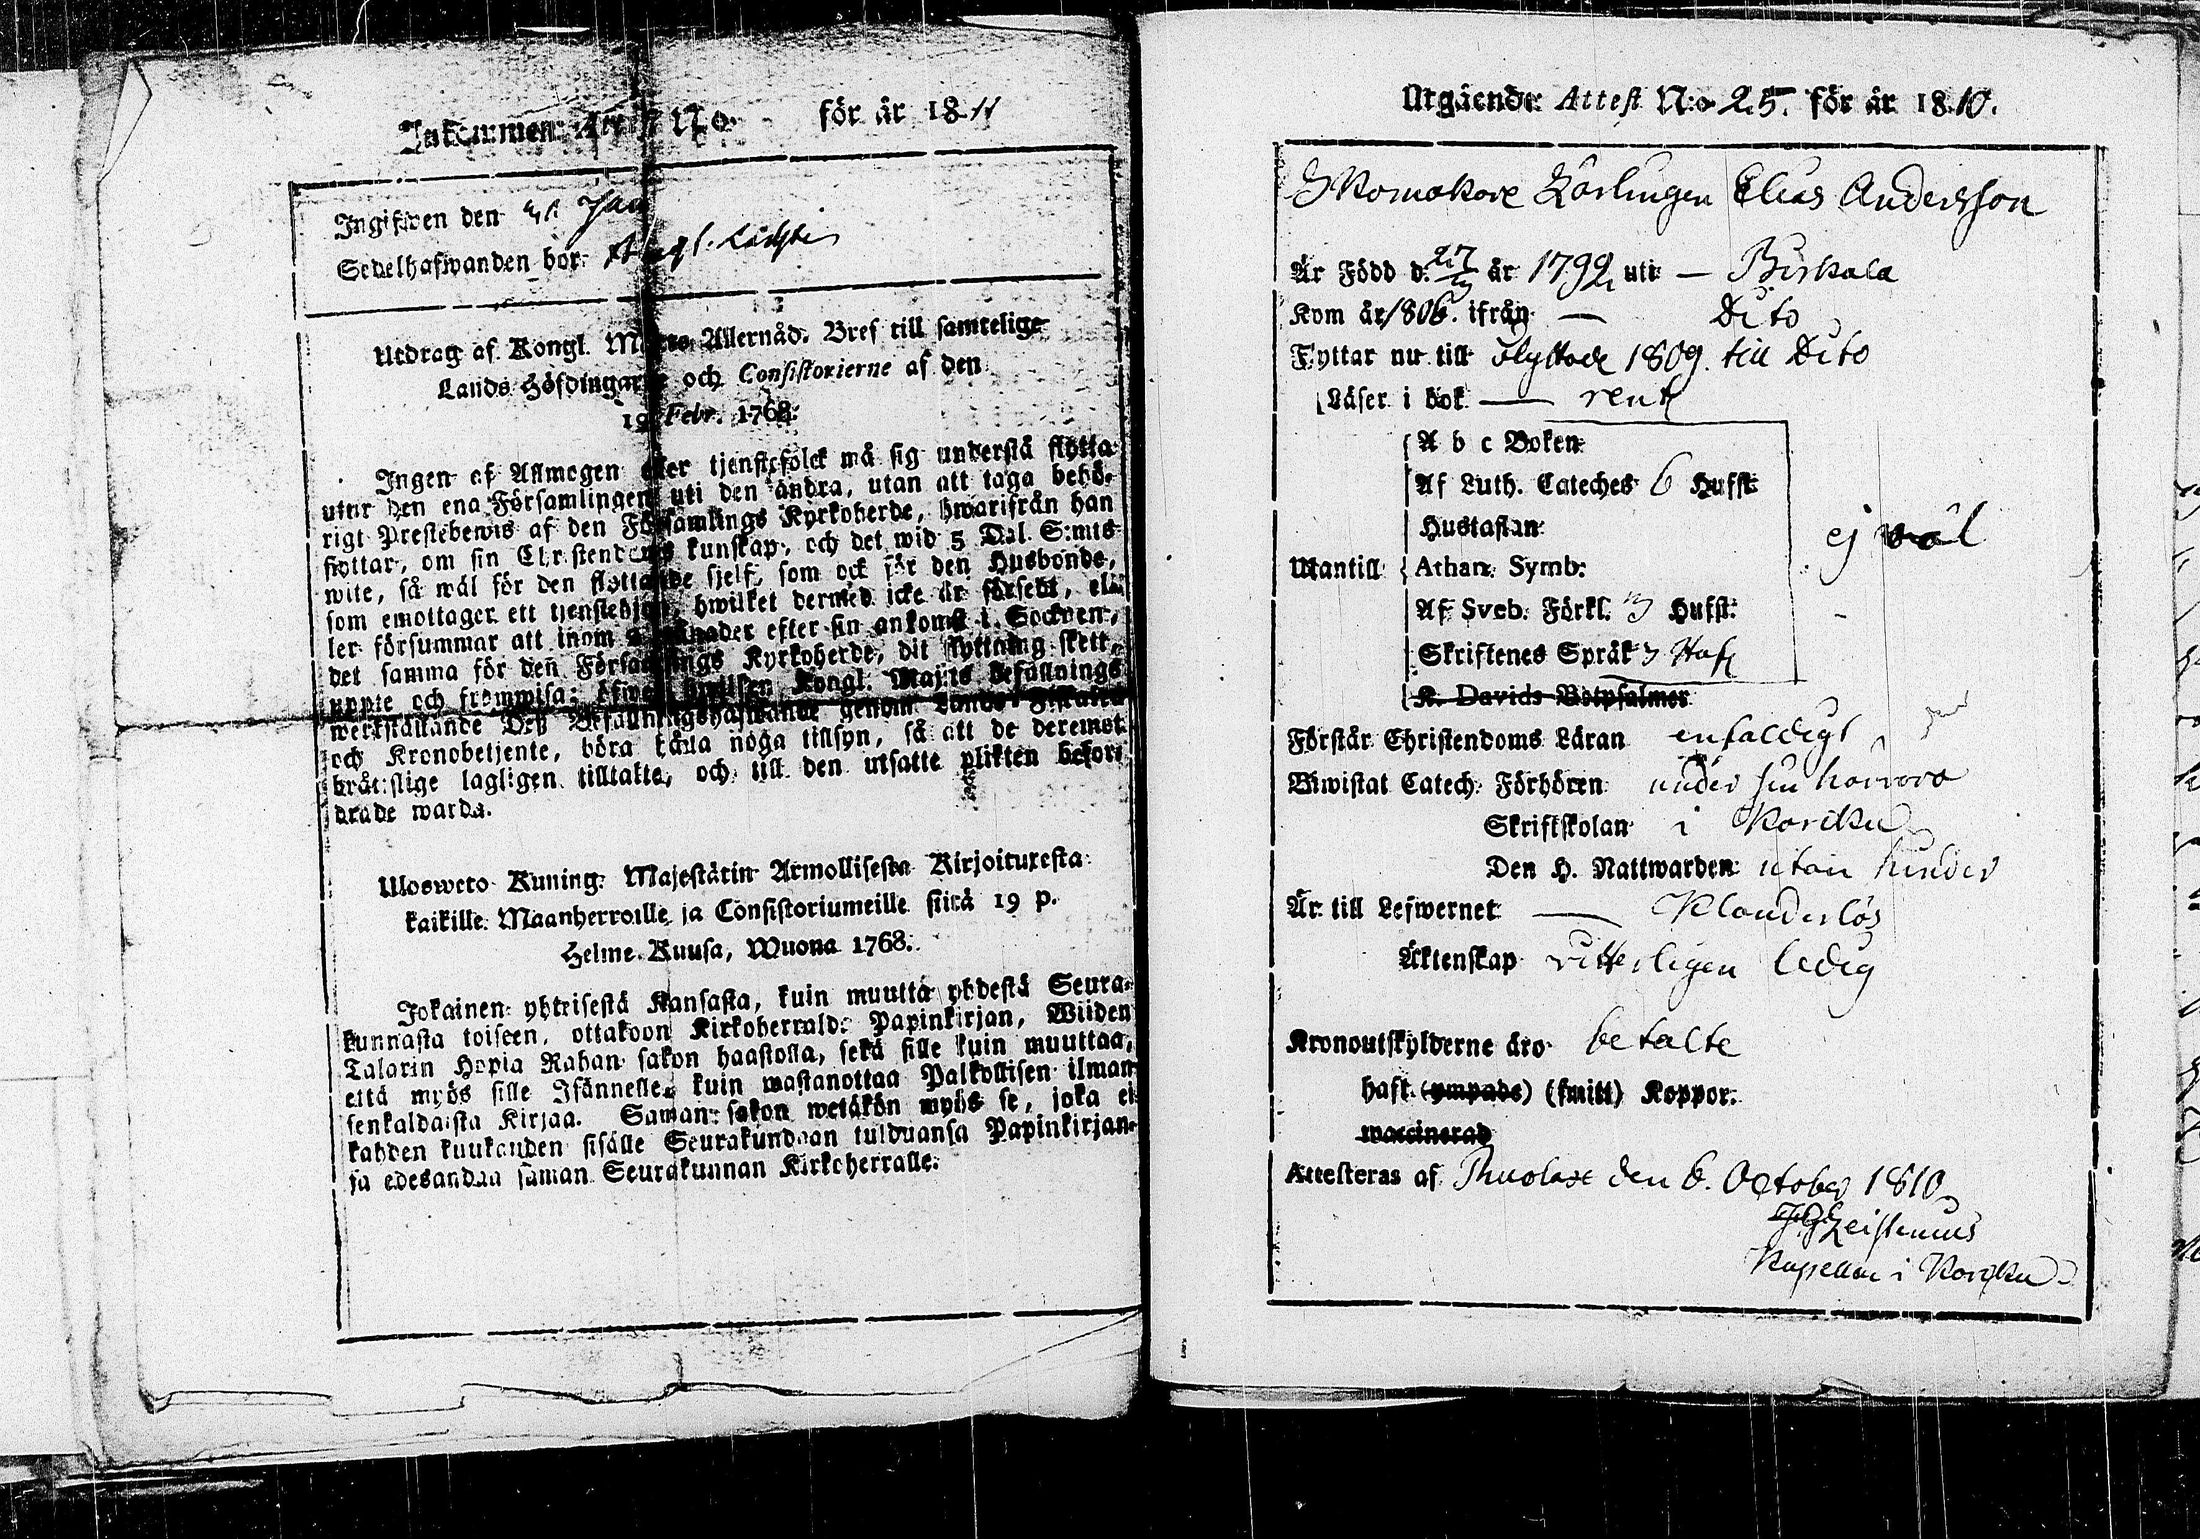 Inkommen Attest N:o för år 1811
Ingifwen den Jan
Sedelhafwanden bor
Utdrag af Kongl. Maj:ts Allernåd. Bref till samtelige
Lands Höfdingarne och Consistorierne af den
19 Febr. 1768.
Ingen af Allmogen eller tjenstefolck må sig understå flytta
utur den ena Församlingen uti den andra, utan att taga behö-
rigt Prestebewis af den Församlings Kyrkoherde, hwarifrån han
flyttar, om sin Christendoms kunskap, och det wid 5 Dal. S:mts
wite, så wäl för den flyttande sjelf, som ock för den Husbonde,
som emottager ett tjenstehjon, hwilket dermed icke är försedt, el-
ler försummar att inom månader efter sin ankomst i Socknen,
det samma för den Församlings Kyrkoherde, dit flyttning skett,
uppte och framwisa; öfwer hwilket Kongl. Maj:ts befallnings
werkställande Deß Befallningshafwande genom Lands Fiskaler
och Kronobetjente, böra hålla noga tillsyn, så att de deremot
bråtslige lagligen tilltalte, och till den utsatte plikten befor-
drade warda.
Ulosweto Kuning. Majestätin Armollisesta Kirjoituxesta
kaikille Maanherroille ja Consistoriumeille siitä 19 p.
Helme-Kuusa, Wuona 1768.
Jokainen yhteisestä Kansasta, kuin muutta yhdestä Seura-
kunnasta toiseen, ottakoon Kirkoherralda Papinkirjan, Wiiden
Talarin Hopia Rahan sakon haastolla, sekä sille kuin muuttaa,
että myös sille Isännelle, kuin wastanottaa Palkollisen ilman
senkaldaista Kirjaa. Saman sakon wetäkön myös se, joka ei
kahden kuukauden sisälle Seurakundaan tulduansa Papinkirjan-
ja edesandaa saman Seurakunnan Kirkoherralle.
Utgående Attest N:o 25. för år 1810.
Skomakare Lärlingen Elias Andersson
Är Född d. 27/3 år 1792 uti — Birkala
Kom år 1806. ifrån — Dito
Flyttar nu till flyttade 1809. till Dito
Läser i bok — rent
A b c Boken
Af Luth. Cateches 6 Hufst.
Hustaflan
Utantill Athan. Symb. ej wäl
Af Sveb. Förkl. 3 Hufst.
Skriftenes Språk 3 Huf
K. Davids Botpsalmer
Förstår Christendoms Läran enfaldigt
Biwistat Catech. Förhören under sin harwaro
Skriftskolan i Kordku
Den H. Nattwarden utan hinder
Är till Lefwernet — Klanderlös
Äktenskap witterligen ledig
Kronoutskylderne äro betalte
haft (ympade) (smitt) Koppor.
waccinerad
Attesteras af den 6. October 1810
Kapellan i Kordku